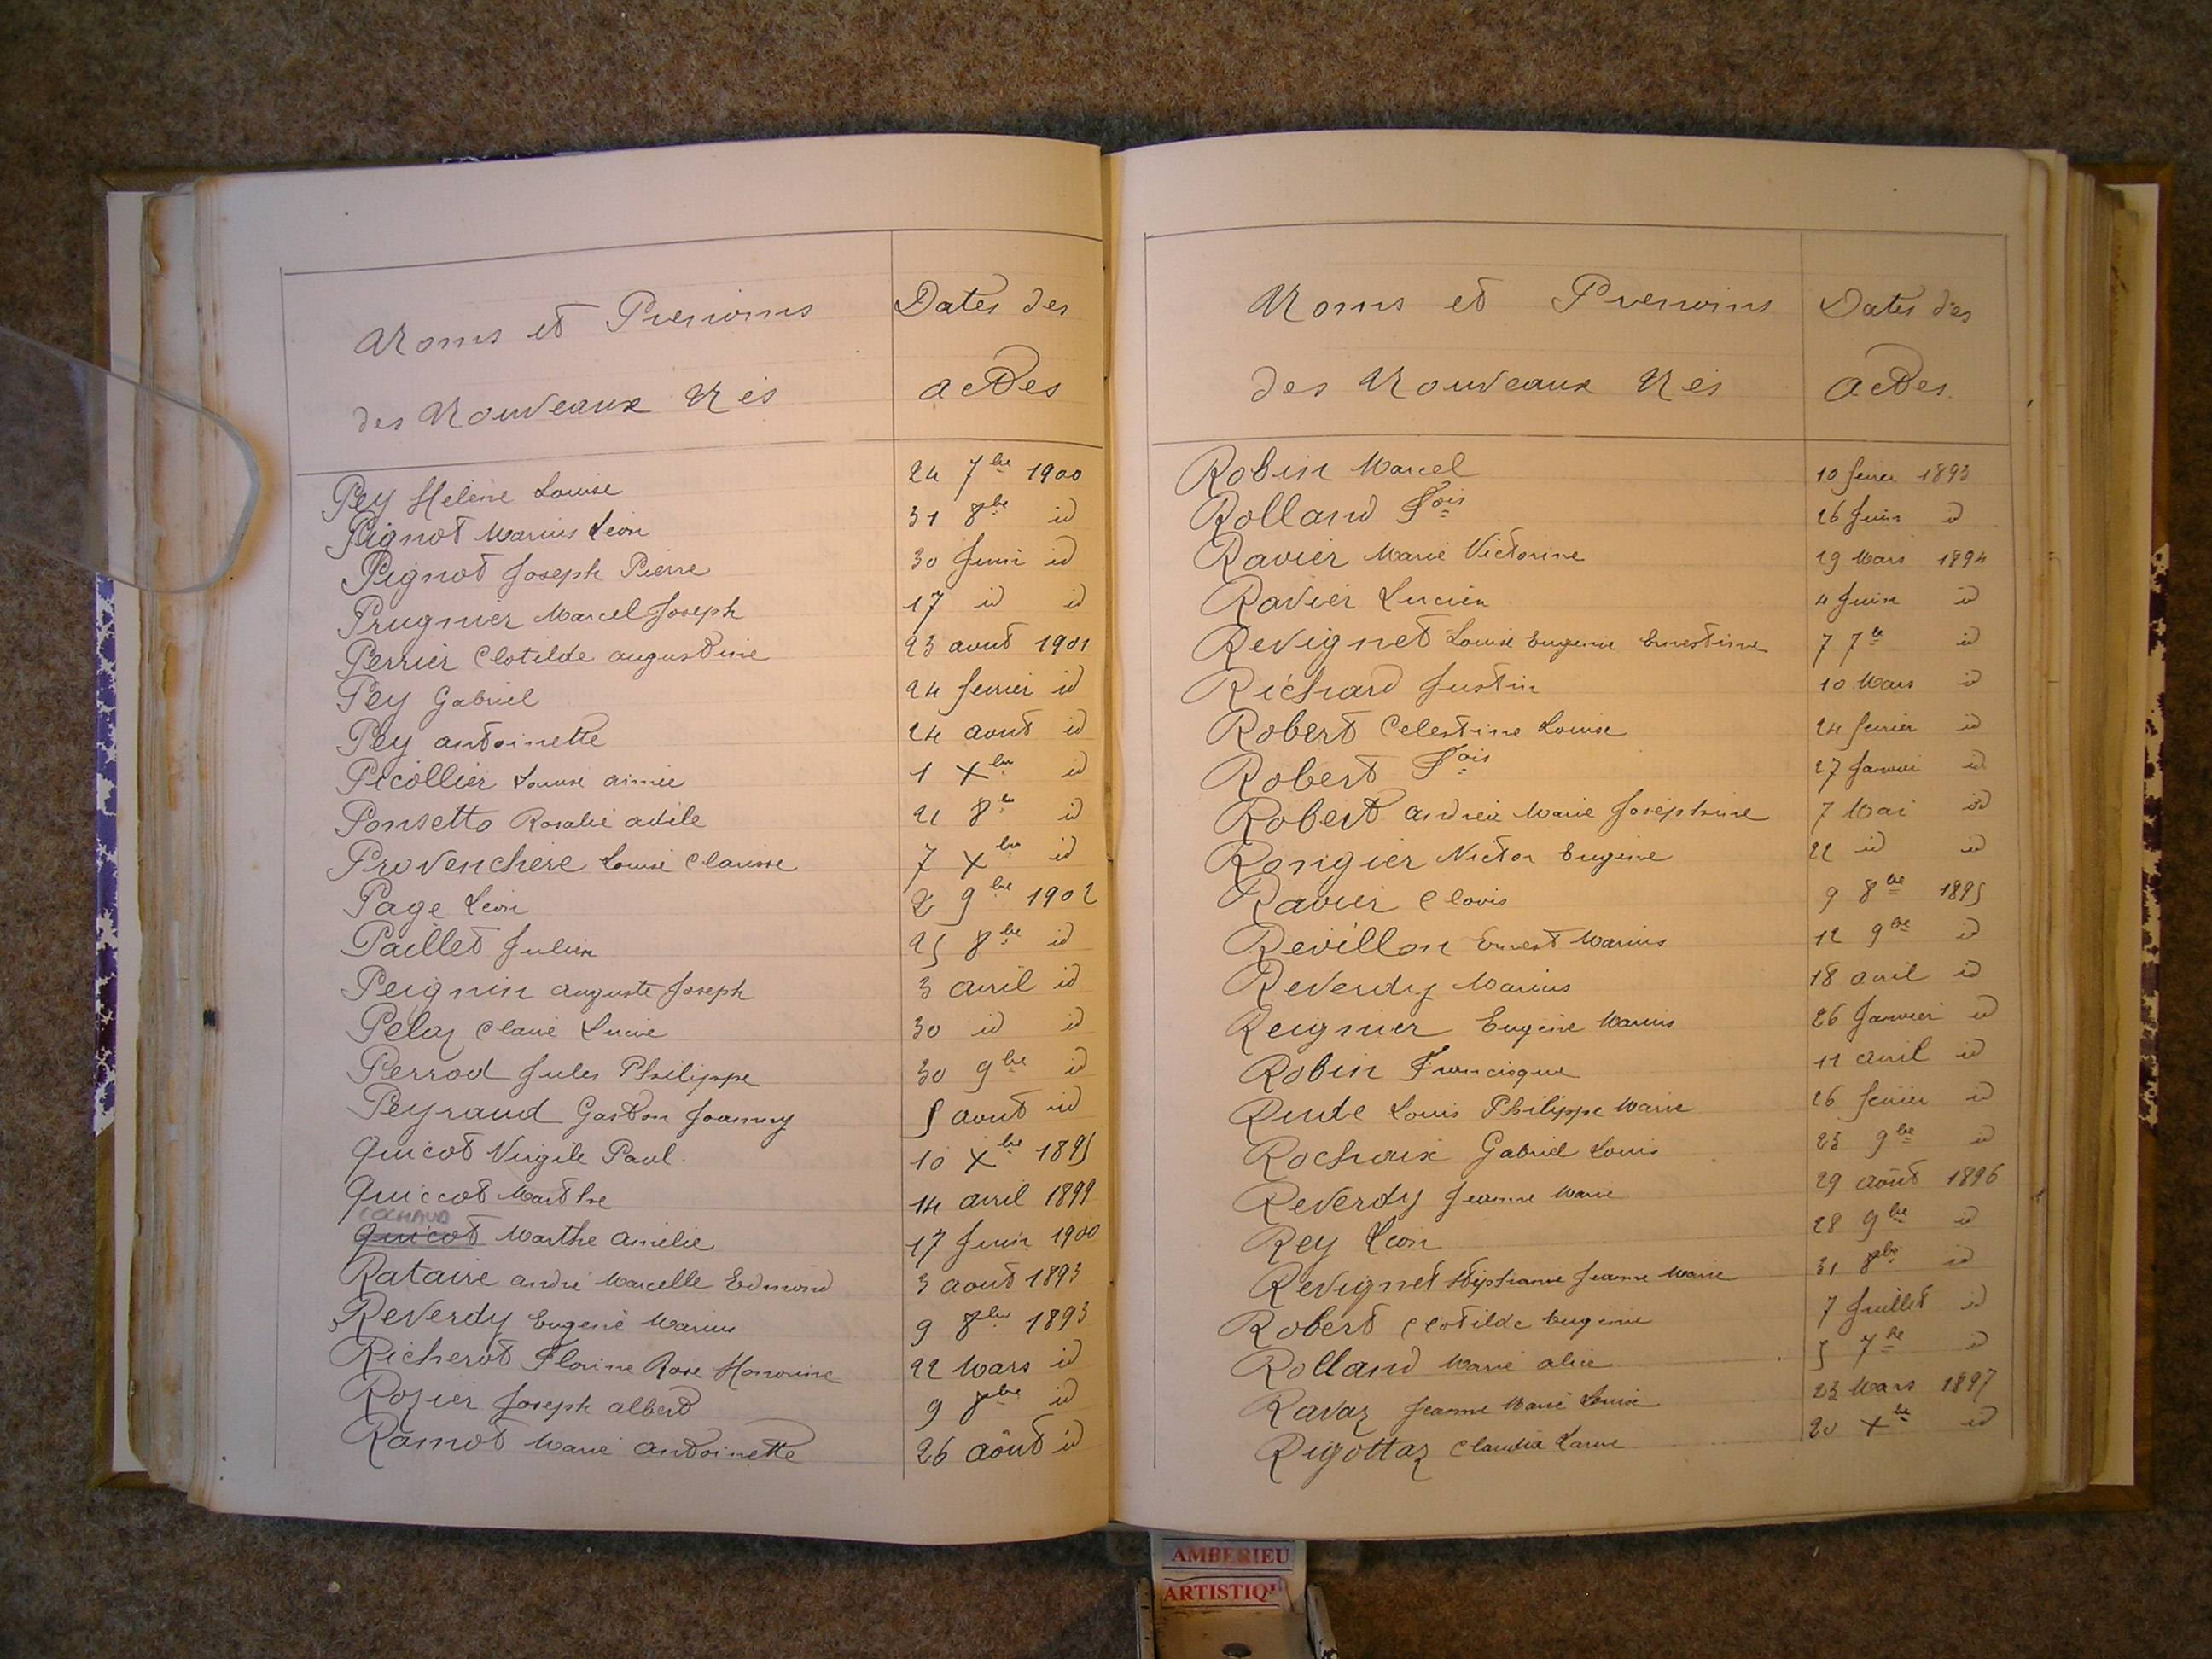 Noms et Prenoms
des Nouveaux Nés
Dates des
actes
Pey Helène Louise 24 7bre 1900
Pignot Marius Léon 31 8bre id
Pignot Joseph Pierre 30 Juin id
Prugnier Marcel Joseph 17 id id
Perrier Clotilde augustine 23 aout 1901
Pey Gabriel 24 fevrier id
Pey antoinette 24 aout id
Picollier Louise aimée 1 Xbre id
Ponsetto Rosalie adèle 21 8bre id
Provenchère Louise Clarisse 7 Xbre id
Page Léon 2 9bre 1902
Paillet Julien 25 8bre id
Peignin auguste Joseph 3 avril id
Pelaz Claire Lucie 30 id id
Perrod Jules Philippe 30 9bre id
Peyraud Gaston Joanny 5 aout id
Quicot Virgile Paul 10 Xbre 1895
Quiccot Marthe 14 avril 1899
COCHAUD
Quicot Marthe Amélie 17 Juin 1900
Rataire andré Marcelle Edmond 3 aout 1893
Reverdy Eugène Marius 9 8bre 1893
Richerot Florine Rose Honorine 22 Mars id
Rozier Joseph albert 9 8bre id
Ramot Marie antoinette 26 aôut id
Noms et Prenoms
des Nouveaux Nés
Dates des
actes
Robin Marcel 10 fevrier 1893
Rolland Fois 26 Juin id
Ravier Marie Victorine 19 Mars 1894
Ravier Lucien 4 Juin id
Revignet Louise Eugenie Ernestine 7 7bre id
Richard Justin 10 Mars id
Robert Celestine Louise 24 fevrier id
Robert Fois 27 Janvier id
Robert andrée Marie Joséphine 7 Mai id
Rongier Victor Eugène 22 id id
Ravier Clovis 9 8bre 1895
Revillon Ernest Marius 12 9bre id
Reverdy Marius 18 avril id
Reignier Eugène Marius 26 Janvier id
Robin Francisque 11 avril id
Rude Louis Philippe Marie 26 fevrier id
Rochaix Gabriel Louis 23 9bre id
Reverdy Jeanne Marie 29 août 1896
Rey Léon 28 9bre id
Revignet Stéphanie Jeanne Marie 31 8bre id
Robert Clotilde Eugenie 7 Juillet id
Rolland Marie alice 5 7bre id
Ravaz Jeanne Marie Louise 23 Mars 1897
Rigottaz Claudia 20 Xbre id
AMBERIEU
ARTISTIQ